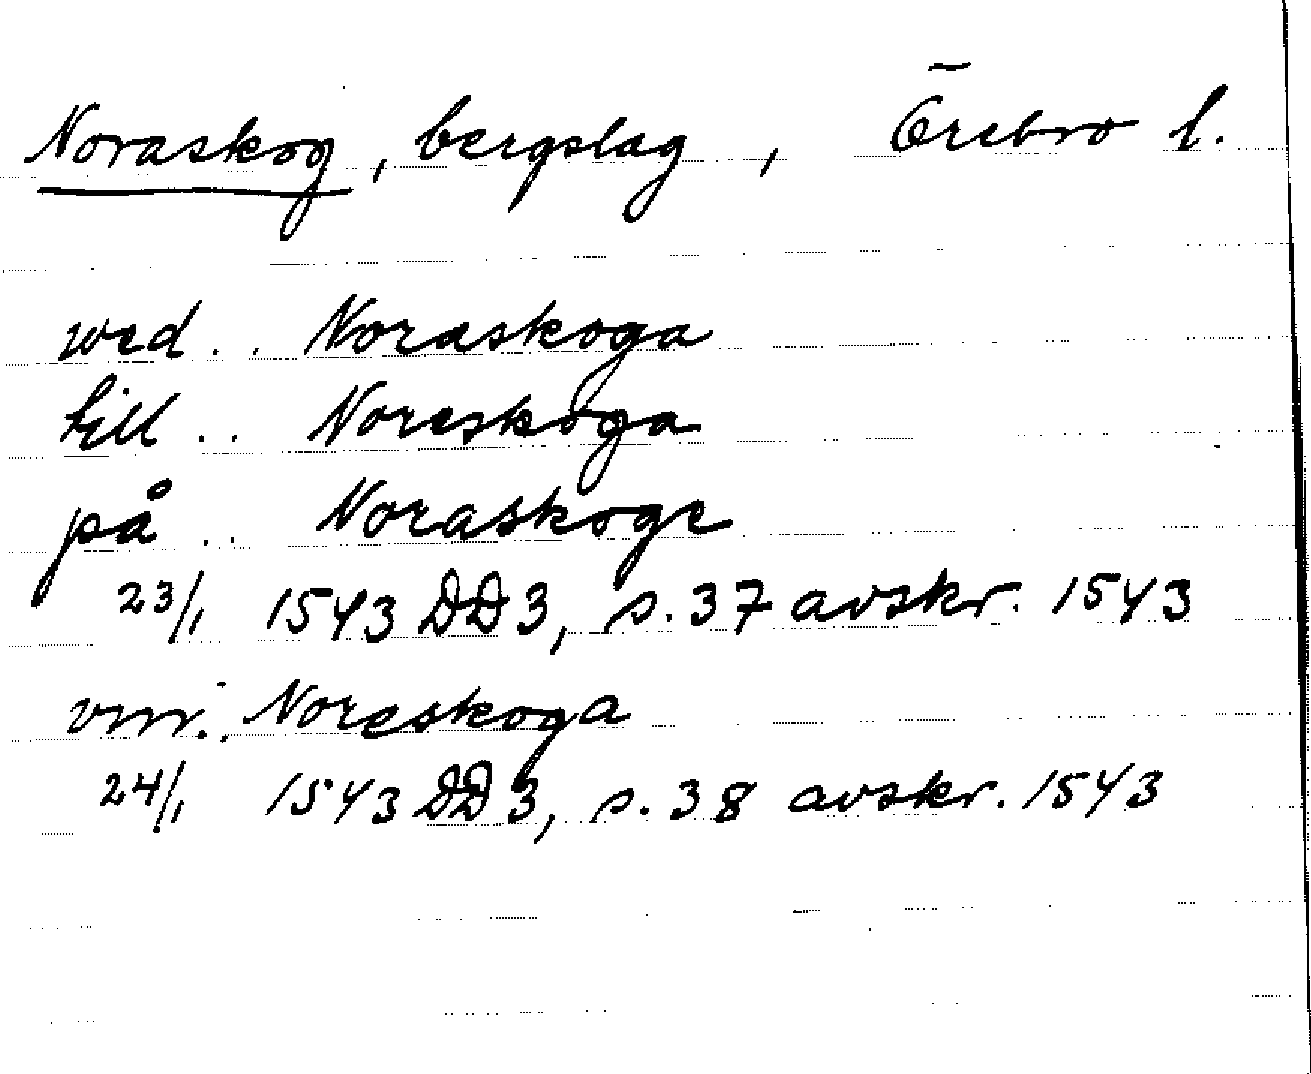 Noraskog, bergslag, Örebro l.
wed .. Noraskoga
till .. Noreskoga
på .. Noraskoge
23/1 1543 DD 3, s. 37 avskr. 1543
vmr. .. Noreskoga
24/1 1543 DD 3, s. 38 avskr. 1543